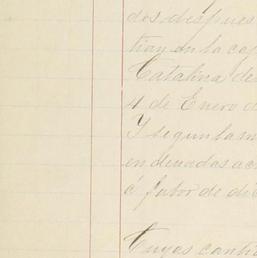 dos despues
tian en la ca
Catalina de
4 de Enero d
Y segun la m
en denadas ac
á fabor de di
Cuyas canti